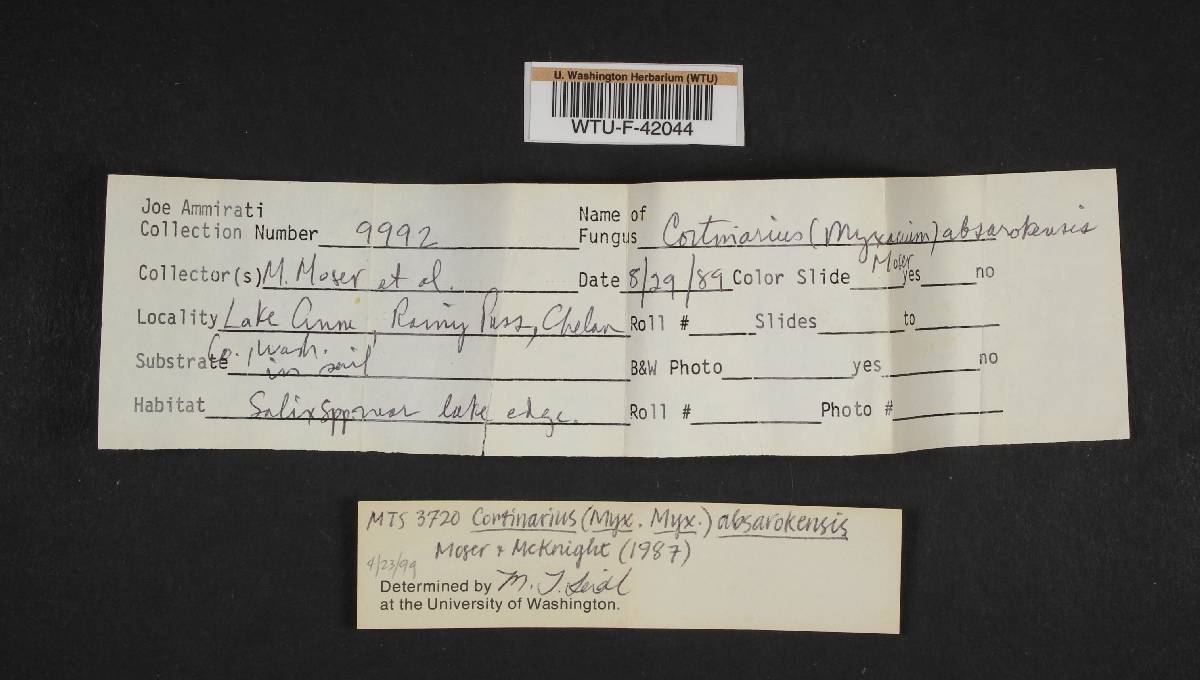 U. Washington Herbarium (WTU)
WTU-F-42044
Joe Ammirati
Collection Number 9992
Name of
Fungus Cortinarius (Myxacium) absarokensis
Moser
Collector(s) M. Moser et al.
Date 8/29/89 Color Slide yes no
Locality Lake Anne, Rainy Pass, Chelan
Roll # Slides to
Co., Wash.
Substrate in soil
B&W Photo yes no
Habitat Salix spp. near lake edge.
Roll # Photo #
MTS 3720 Cortinarius (Myx. Myx.) absarokensis
Moser & McKnight (1987)
4/23/99
Determined by M. T. Seidl
at the University of Washington.